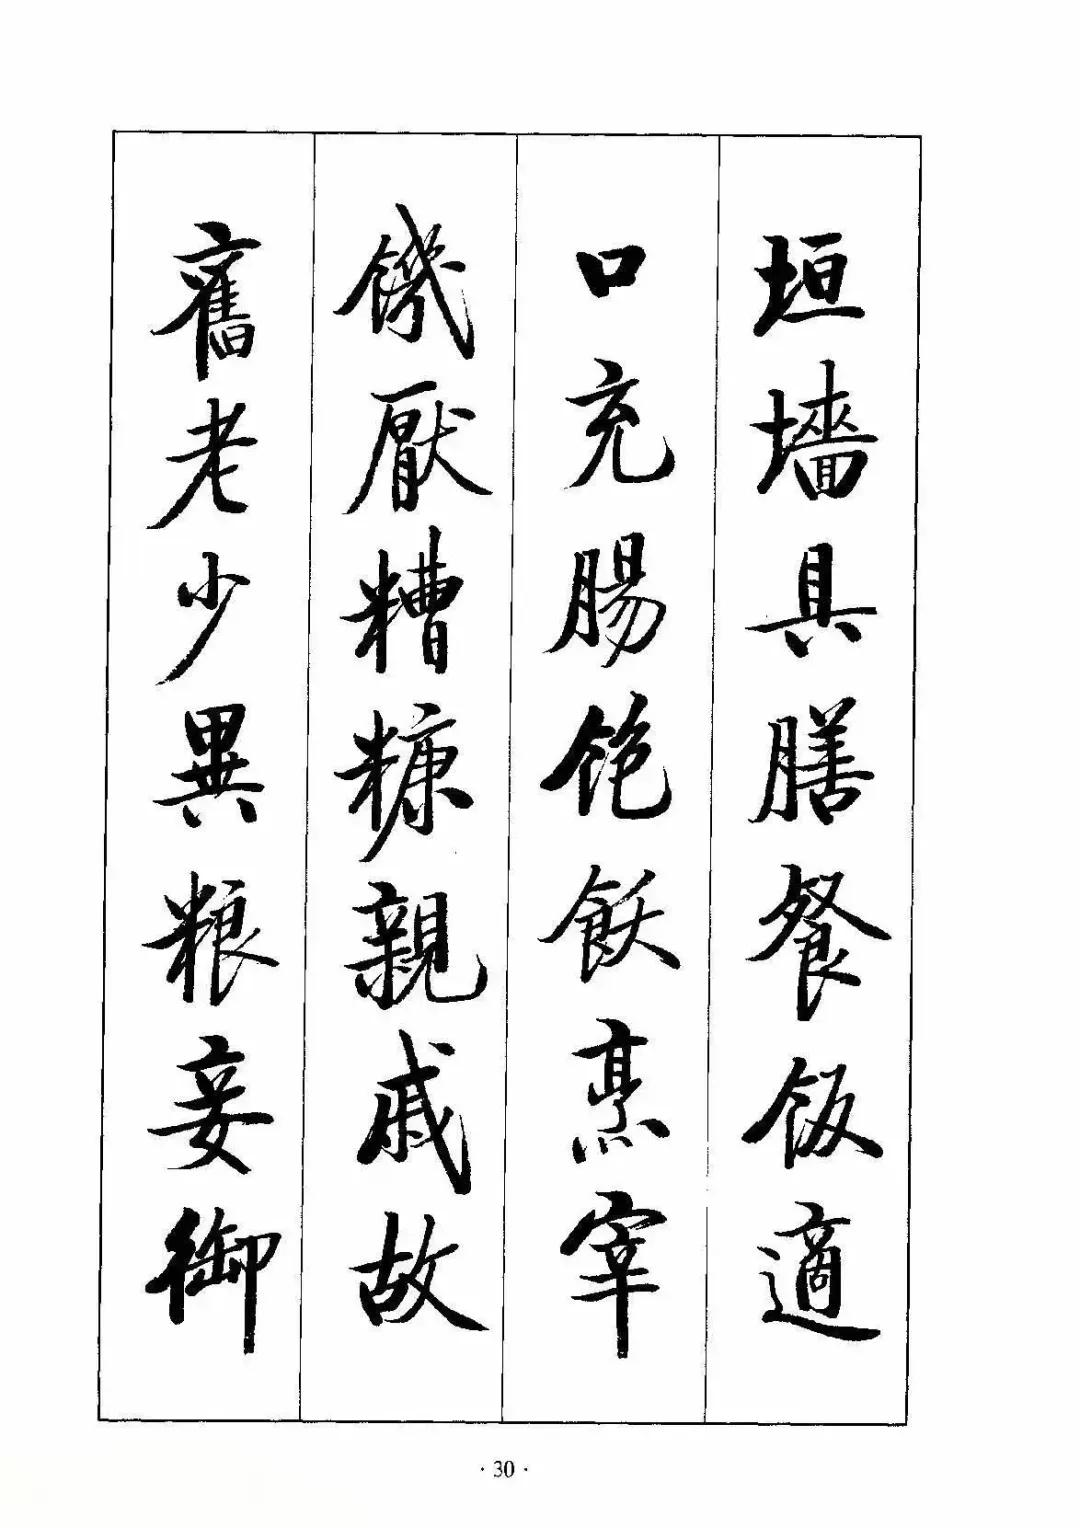 垣墻具膳餐飯適
口充腸飽飫烹宰
饑厭糟糠親戚故
舊老少異粮妾御
· 30 ·